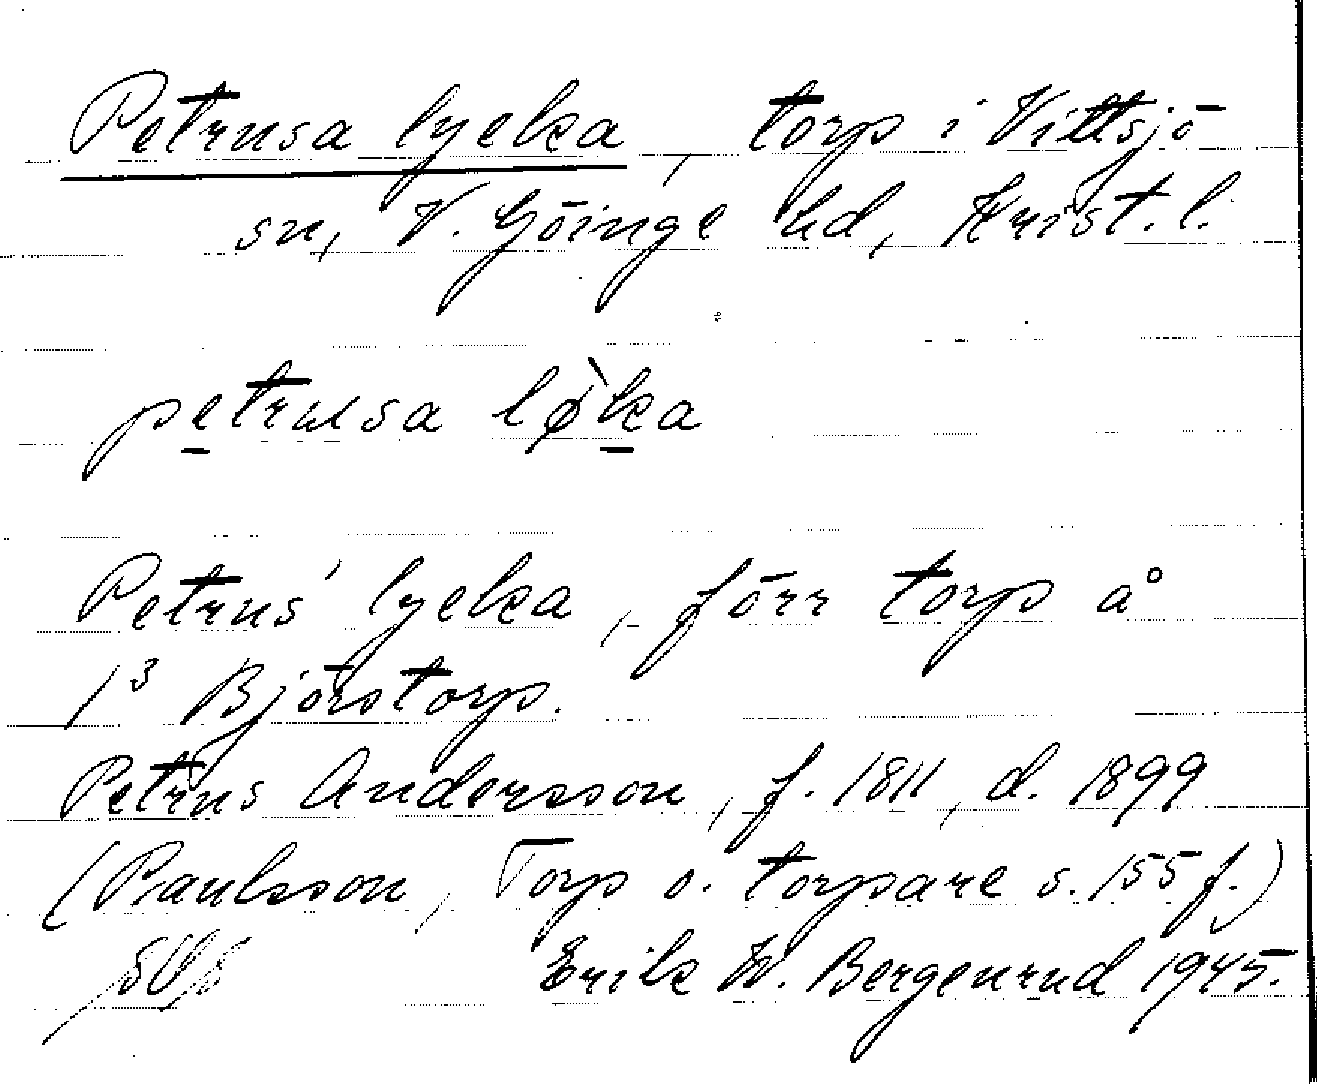 Petrusa lycka, torp i Vittsjö
sn, V. Göinge hd, Krist. l.
petrusa lø̀ka
Petrus' lycka, förr torp å
1³ Björstorp.
Petrus Andersson, f. 1811, d. 1899
(Paulsson, Torp o. torpare s. 155 f.)
Erik W. Bergenrud 1945.